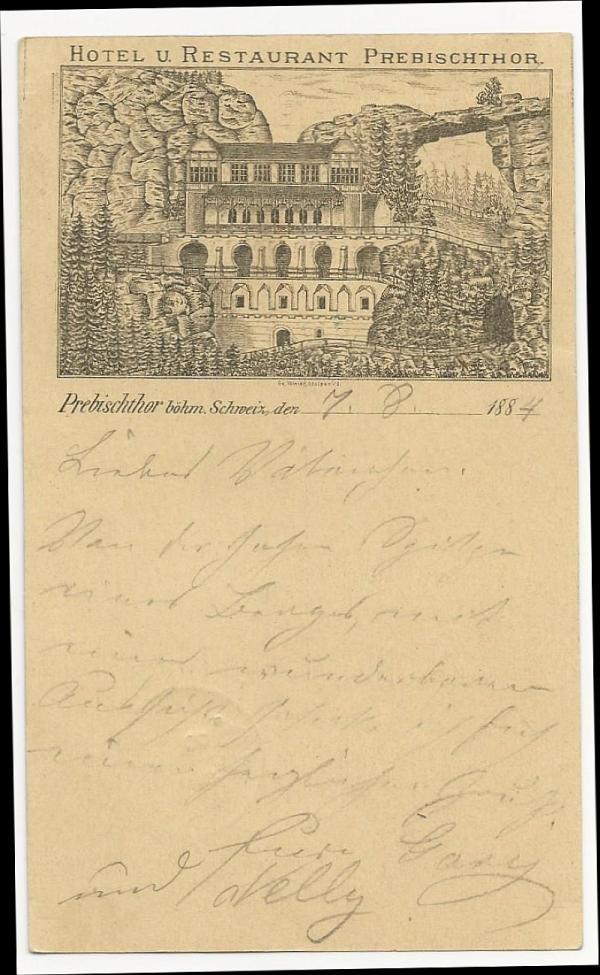 HOTEL U. RESTAURANT PREBISCHTHOR.
Prebischthor böhm. Schweiz, den 7. 8. 1884
Liebes Väterchen.
Von der hohen Spitze
eines Berges, mit
einer wunderbaren
Aussicht schicke ich Euch
einen herzlichen Gruß.
Eure
und Nelly